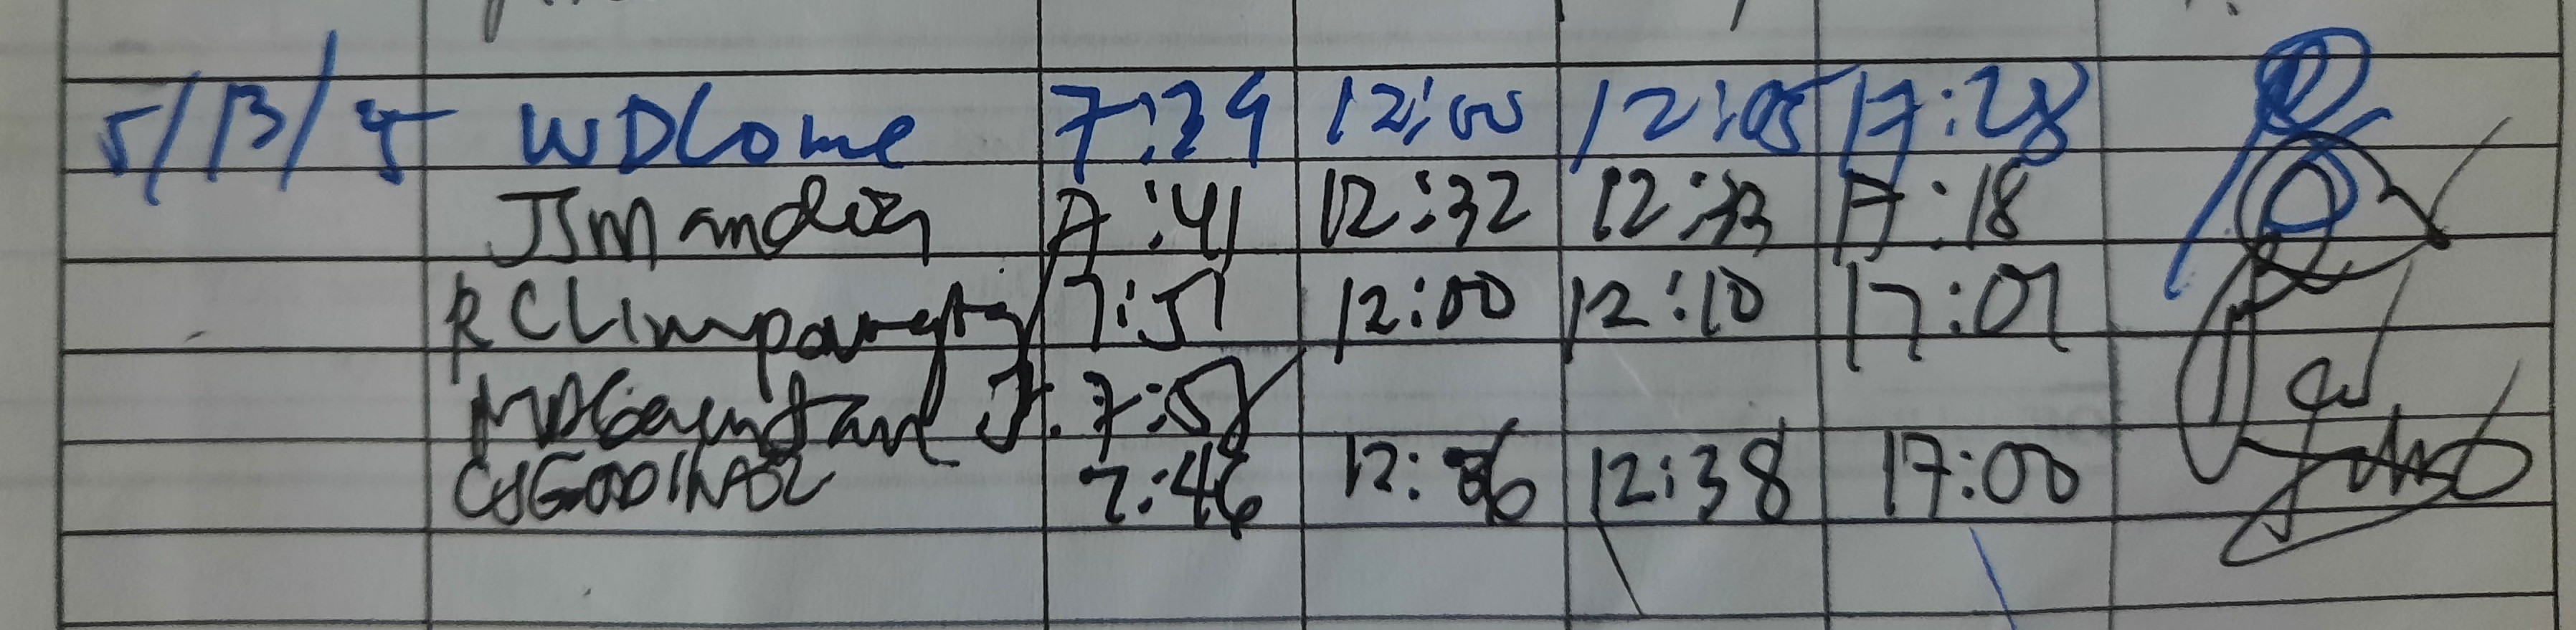 5/13/5 WDLome 7:29 12:00 12:05 17:28
JSMandia 7:41 12:32 12:33 17:18
RCLimpangog 7:51 12:00 12:10 17:07
7:58
CJGODINEZ 7:46 12:36 12:38 17:00